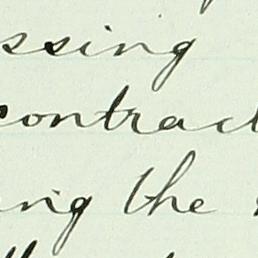 ssing
contract
ing the